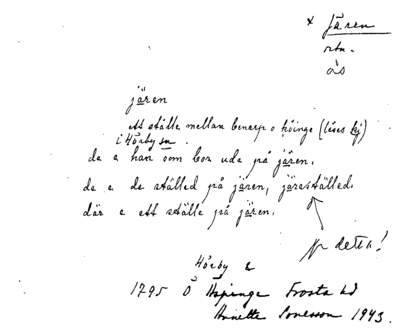 × Jären
ortn.
ås
jären
ett ställe mellan benarp o höinge (läses
i Hörby sn.
de e han som bor ude på jären.
de e de ställed på jären, järaställed.
där e ett ställe på jären.
detta!
Hörby
1795 Ö Äspinge Frosta hd
Annette Jonesson 1943.